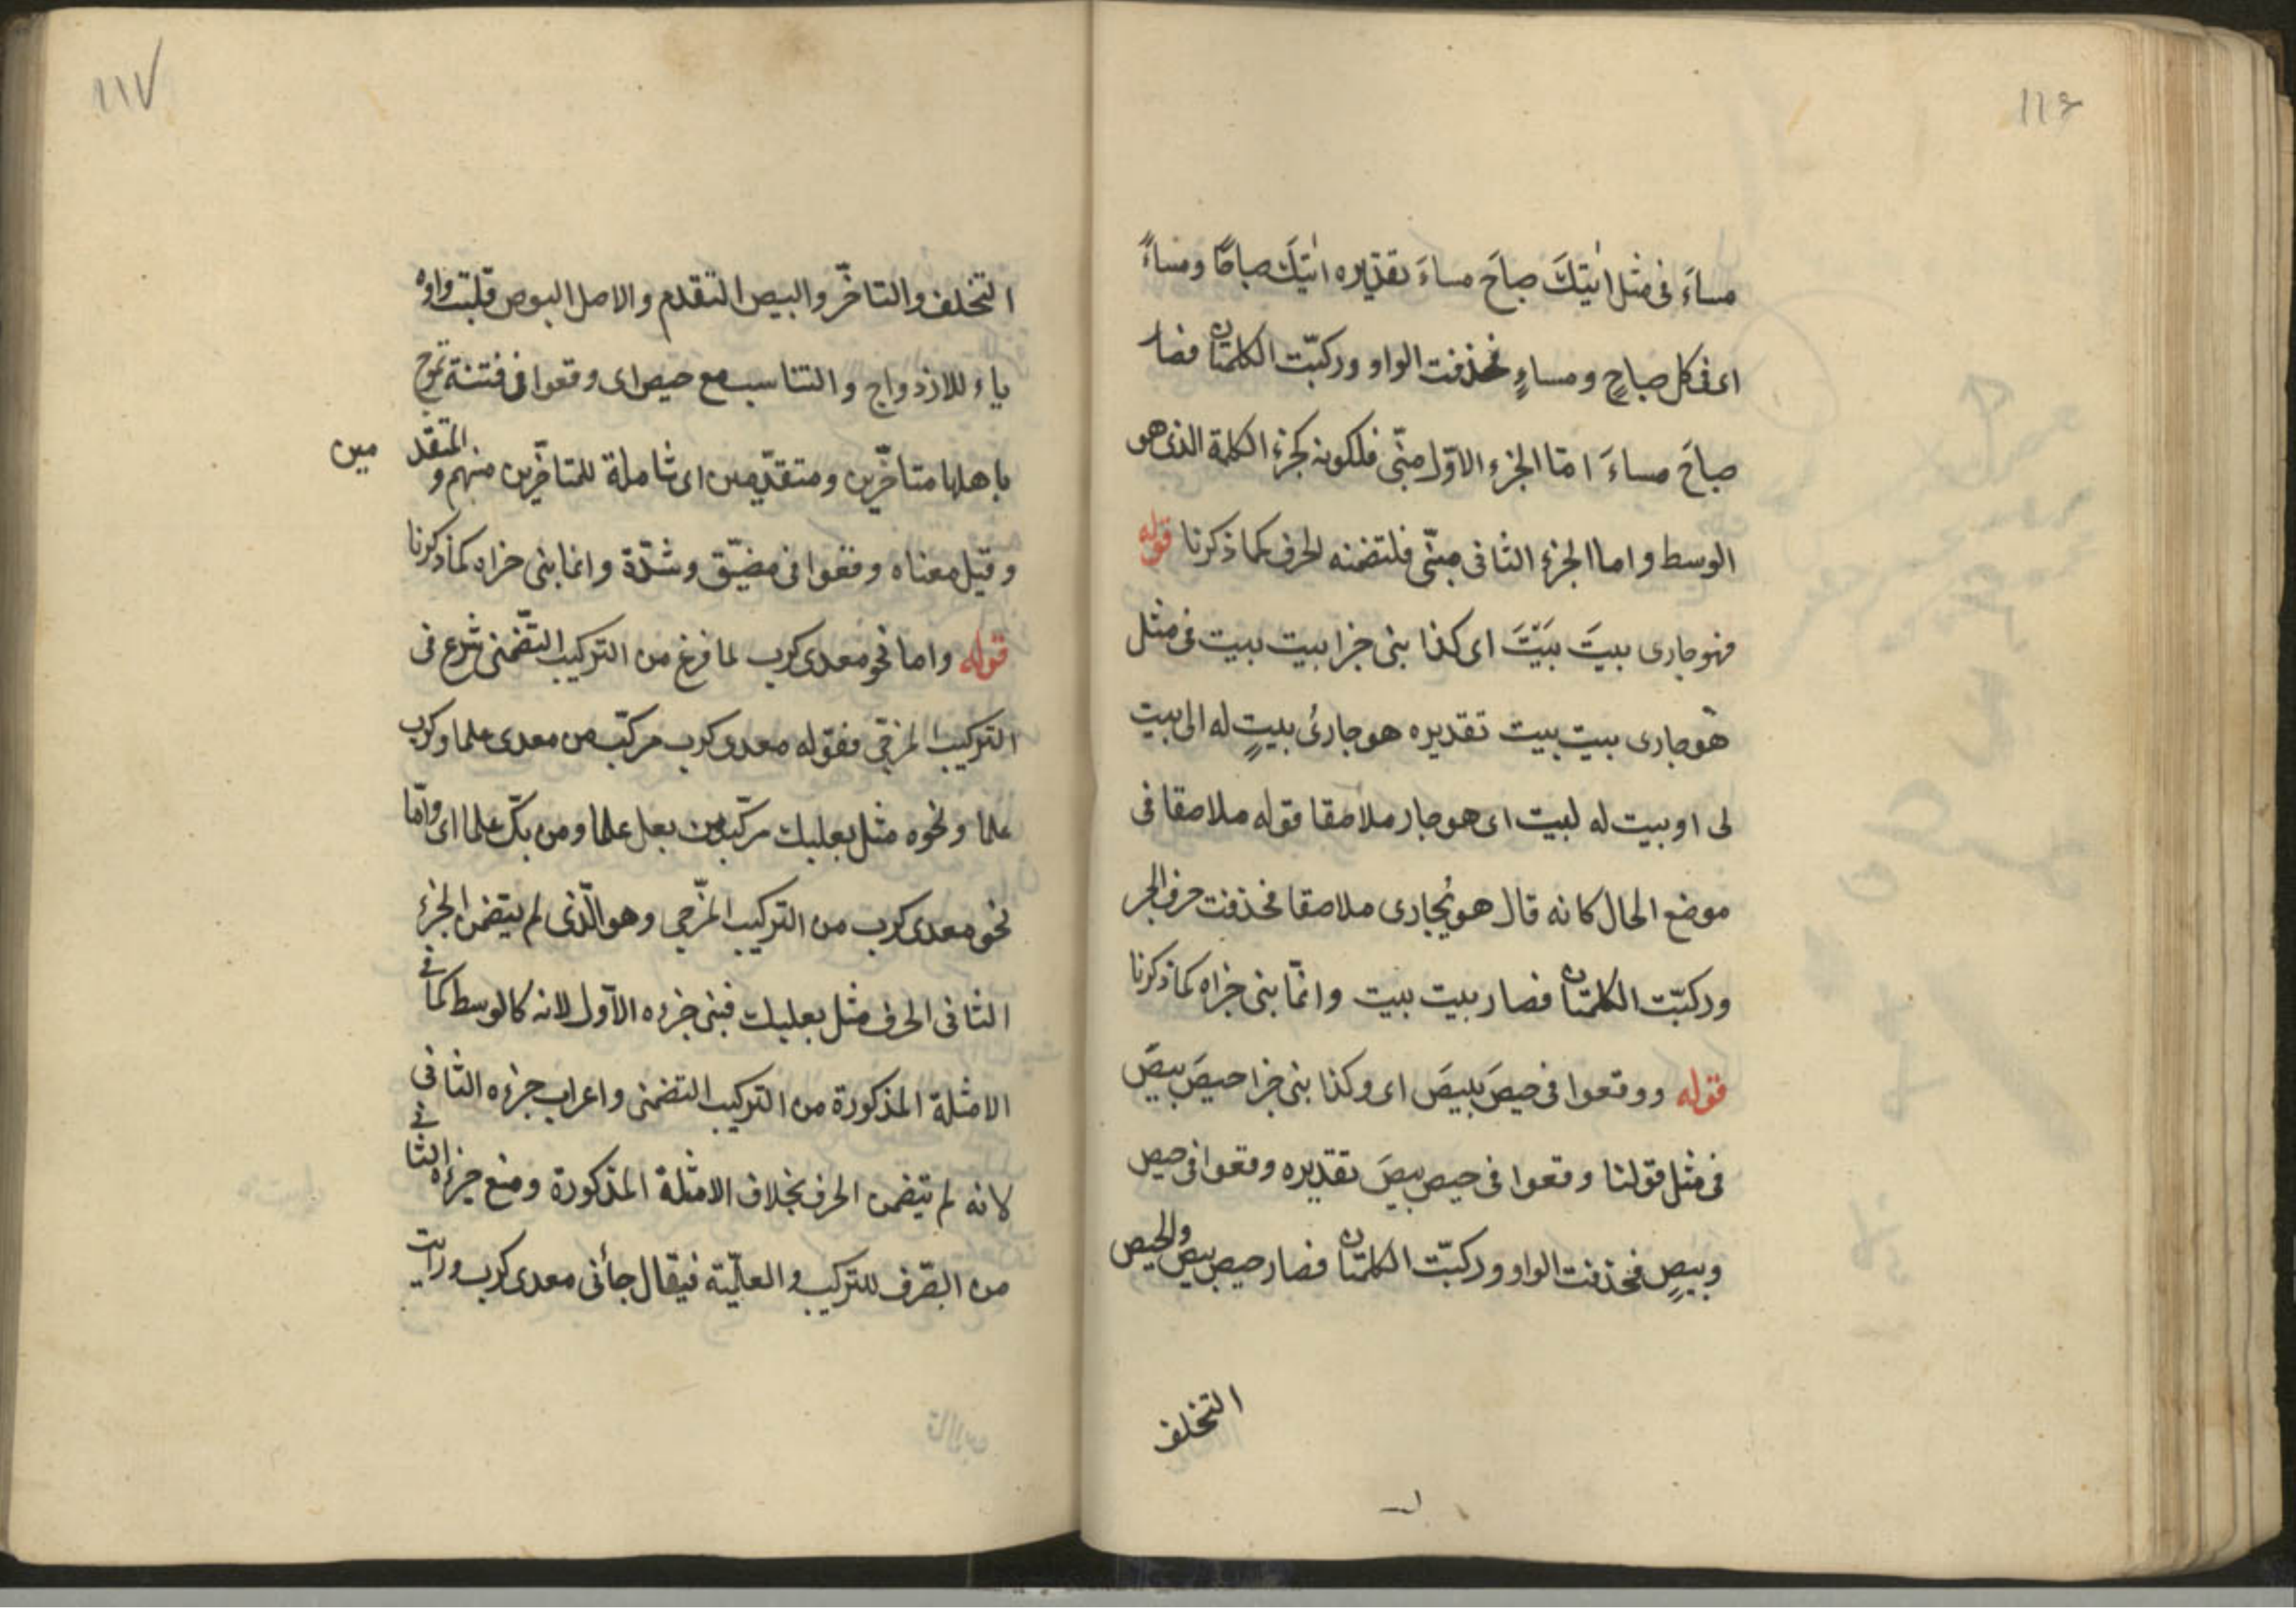 ١١٦
مساءَ فى مثل اتيتكَ صباحَ مساءَ تقديره اتيتكَ صباحًا ومساءً
اى فى كل صباحٍ ومساءٍ فحذفت الواو وركبّت الكلمتان فصار
صباحَ مساءَ امّا الجزء الاوّل مبنّى فلكونه كجزء الكلمة الذى هو
الوسط واما الجزء الثانى مبنّى فلتضمنه لحرف كما ذكرنا قوله
فهو جارى بيتَ بَيْتَ اى كذا بنى جزا بيت بيت فى مثل
هو جارى بيت بيت تقديره هو جارىُ بيتٍ له الى بيت
لى او بيت له لبيت اى هو جار ملاصقا قوله ملاصقا فى
موضع الحال كانه قال هو يُجارى ملاصقا فحذفت حرف الجر
وركبّت الكلمتان فصار بيت بيت وانمّا بنى جزاه كما ذكرنا
قوله ووقعوا فى حيصَ بيصَ اى وكذا بنى جزا حيصَ بيصَ
فى مثل قولنا وقعوا فى حيص بيصَ تقديره وقعوا فى حيص
وبيصٍ فحذفت الواو وركبّت الكلمتان فصار حيص بيص والحيص
التخلف
١١٧
التخلف والتاخّر والبيص التقدم والاصل البوص قلّبت واوه
ياء للازدواج والتناسب مع حيص اى وقعوا فى فتنة تموج
باهلها متاخّرين ومتقدّمين اى شاملة للمتاخّرين منهم والمتقد مين
وقيل معناه وقعوا فى مضيّق وشدّة وانما بنى جزاه كما ذكرنا
قوله واما نحو معدى كرب لما فرغ من التركيب التّضمنى شرع فى
التركيب المزجّى فقوله معدى كرب مركبّ من معدى علما وكرب
علما ونحوه مثل بعلبك مركّب من بعل علما ومن بكّ علما اى وامّا
نحو معدى كرب من التركيب المزّجى وهو الّذى لم يتضمن الجزء
الثانى الحرف مثل بعلبك فبنى جزءه الاوّل لانه كالوسط كما فى
الامثلة المذكورة من التركيب التضمنى واعراب جزءه الثانى
لانه لم يتضمن الحرف بخلاف الامثلة المذكورة ومنع جزءه الثانى
من الصّرف للتركيب والعلميّة فيقال جائنى معدى كرب ورايت